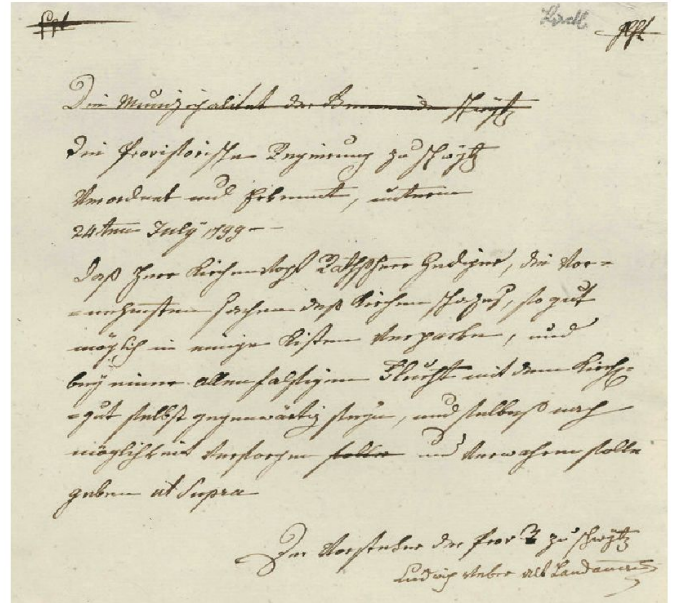 Die Municipalitet der Gemeinde Schwytz
Die Provisorische Regierung zu Schwytz
Verordnet und Erkennt, unterm
24ten July 1799 --
daß Herr Kirchenvogt Rathsherr Gudiger, die Vor=
=nehmsten Sachen des Kirchen schazes, so gut
möglich in einige Kisten Verpacken, und
bey einer allenfahlsigen Flucht mit dem Kirch=
=gut selbst gegenwärtig seyn, und selbes nach
möglichkeit Versorgen solle und Verwahren solle
geben ut Supra
Der Vorsteher der Prov R zu Schwytz
Ludwig Weber alt Landamman